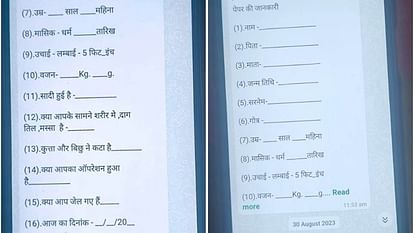 (7).उम्र- ____ साल ____महिना
(8).मासिक - धर्म _____तारिख
(9).उचाई - लम्बाई - 5 फिट_इंच
(10).वजन- _____Kg. ____g.
(11).सादी हुई है -___________
(12).क्या आपके सामने शरीर मे ,दाग
तिल ,मस्सा है -_______
(13).कुत्ता और बिछु ने कटा है______
(14).क्या आपका ऑपरेशन हुआ
है___________
(15).क्या आप जेल गए हैं_____
(16).आज का दिनांक - __/__/20__
पेपर की जानकारी
(1) नाम -______________
(2).पिता -______________
(3).माता- ______________
(4).जन्म तिथि -____________
(5).सरनेम-______________
(6).गोत्र -______________
(7).उम्र- ____ साल ____महिना
(8).मासिक - धर्म _____तारिख
(9).उचाई - लम्बाई - 5 फिट_इंच
(10).वजन- _____Kg. ____g.... Read
more
11:53 am
30 August 2023